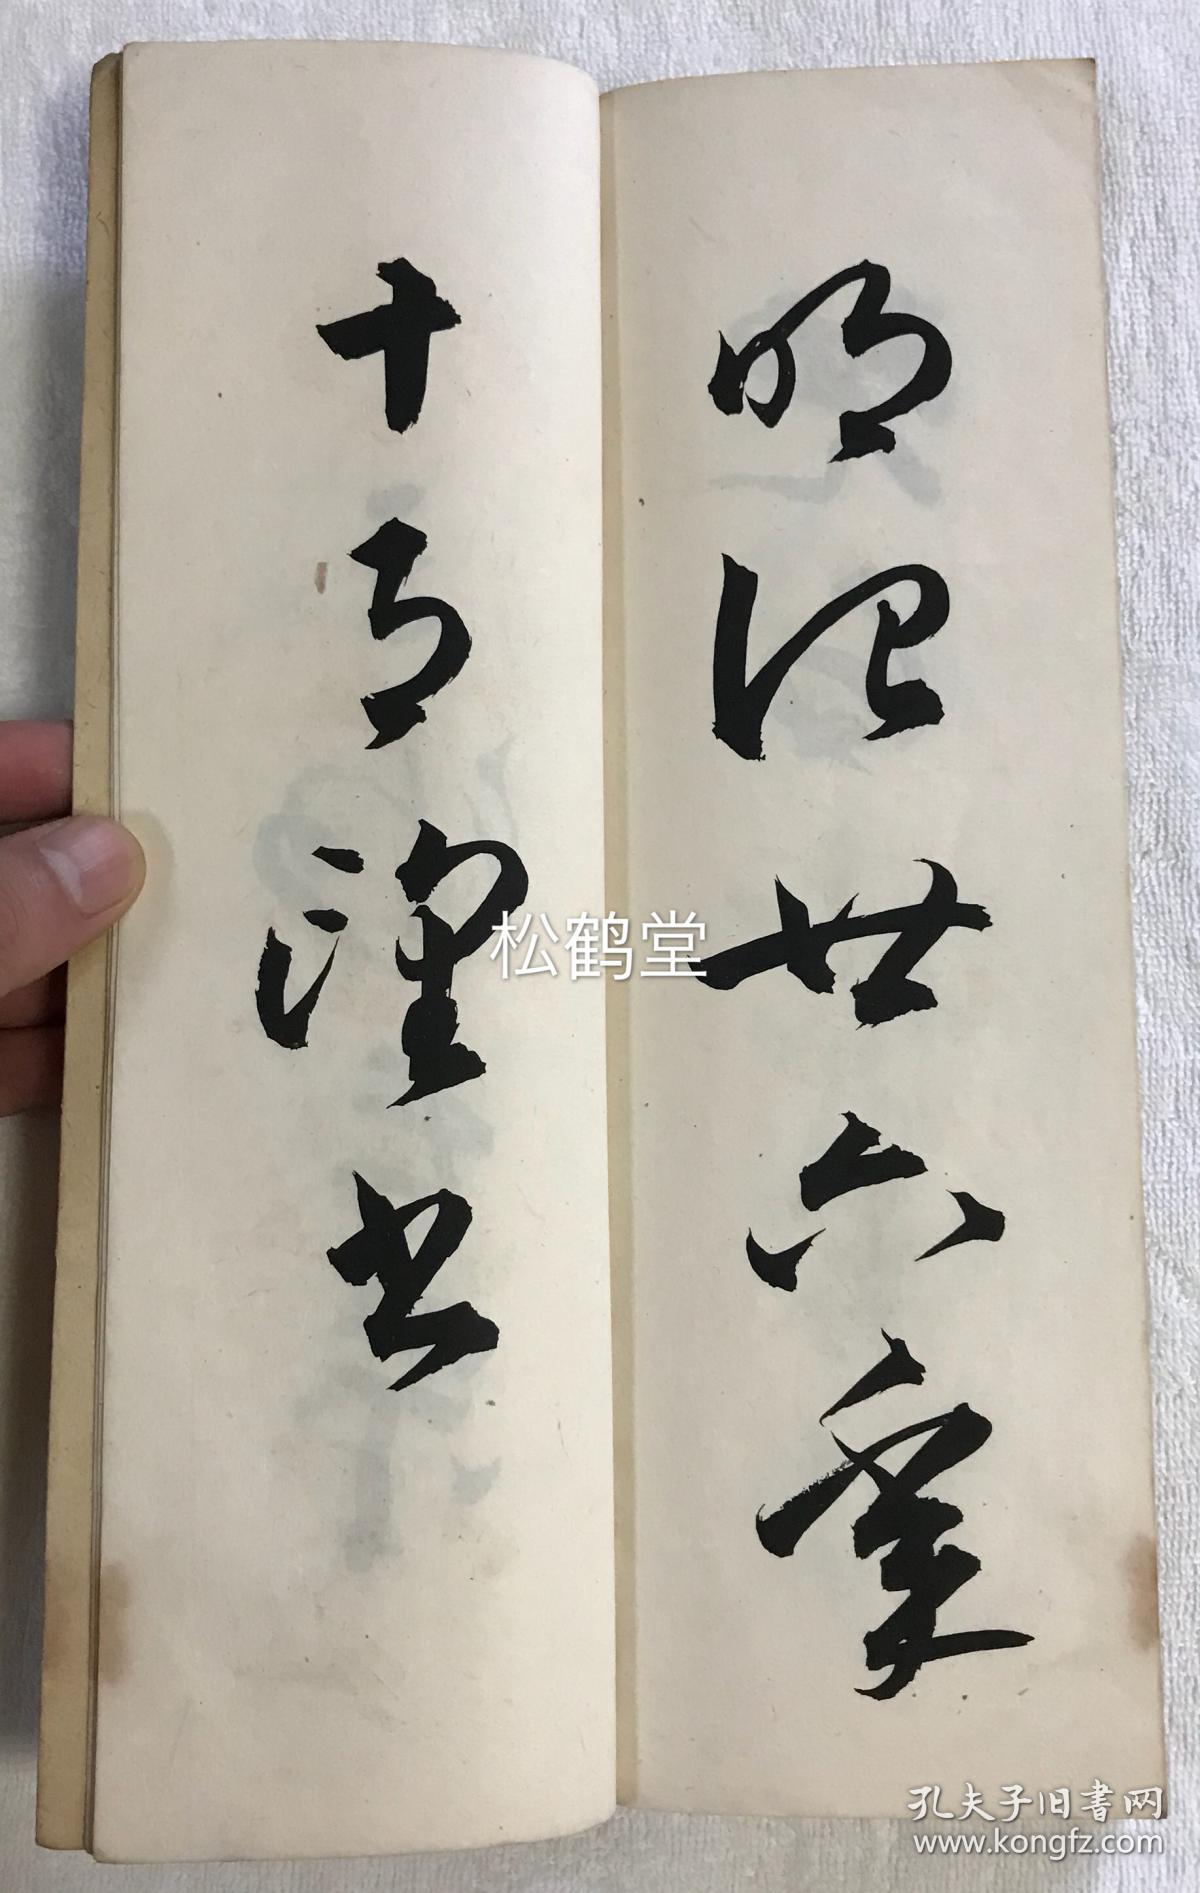 明治丗六秊
十月望書
松鹤堂
孔夫子旧書网
www.kongfz.com